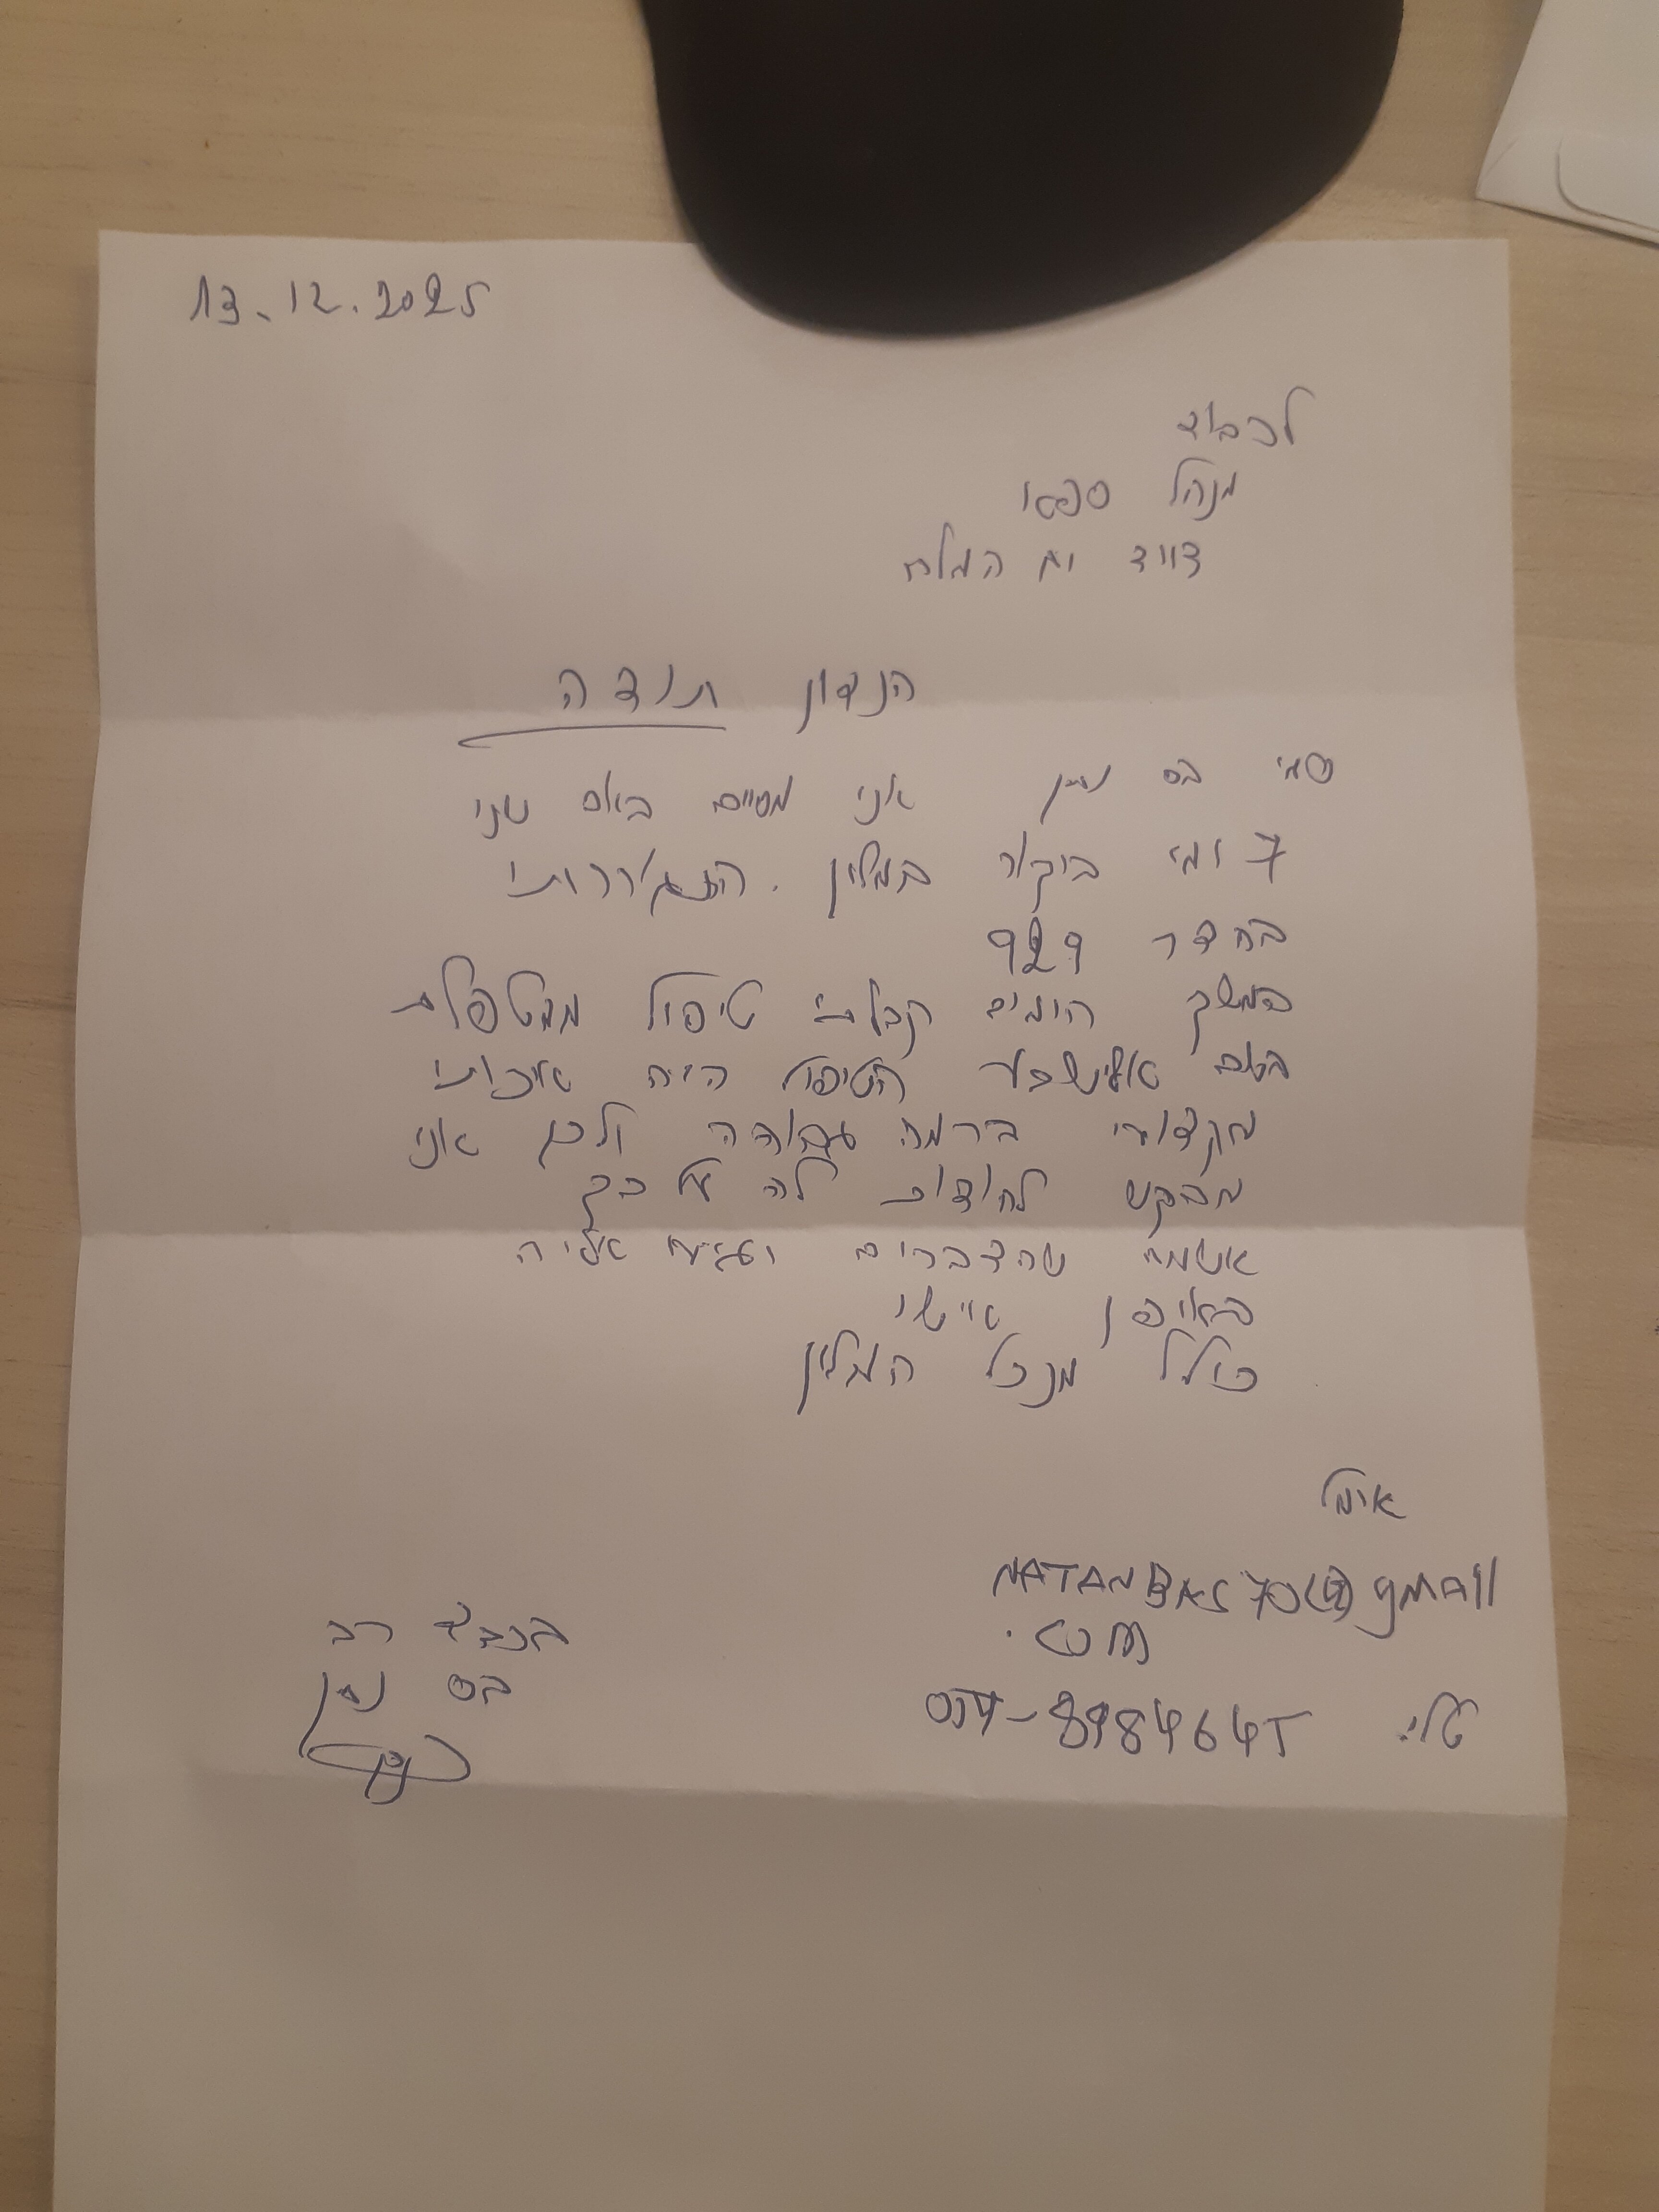 13.12.2025
לכבוד
מנהל ספא
דויד ים המלח
הנדון תודה
שמי בס נתן אני מסיים ביום שני
7 ימי ביקור במלון. התגוררתי
בחדר 929
במשך הימים קבלתי טיפול ממטפלת
בשם אלישבע הטיפול היה איכותי
מקצועי ברמה גבוהה ולכן אני
מבקש להודות לה על כך
אשמח שהדברים יגיעו אליה
באופן אישי
כולל מנכל המלון
אימל
NATANBAS70@gmail
.com
טלי. 054-8984645
בכבוד רב
בס נתן